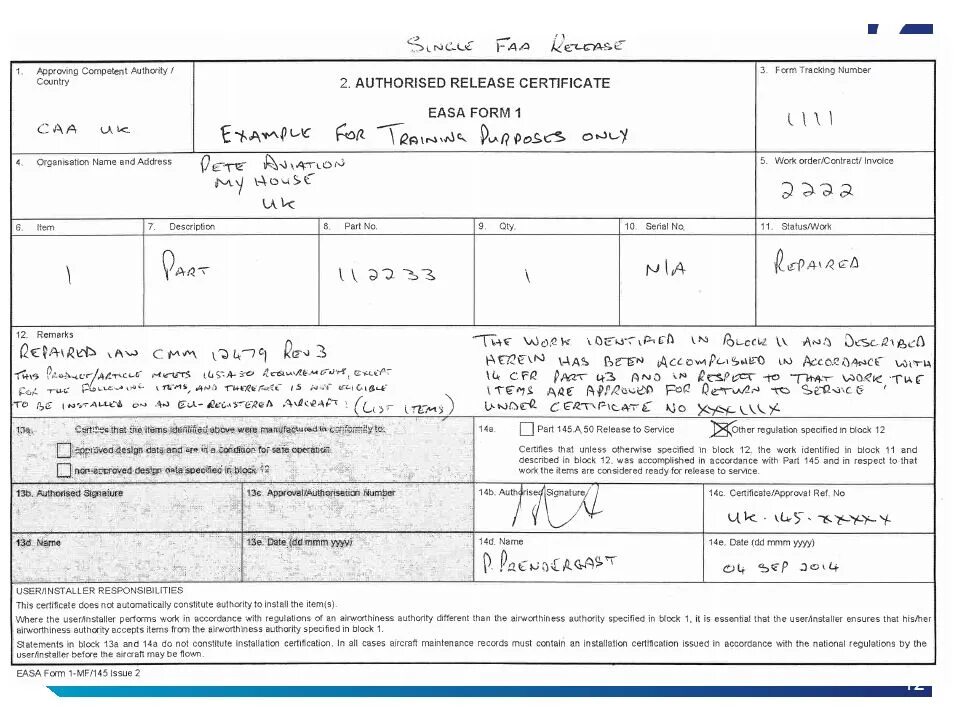 SINGLE FAA RELEASE
1. Approving Competent Authority / Country
CAA UK
2. AUTHORISED RELEASE CERTIFICATE
EASA FORM 1
EXAMPLE FOR TRAINING PURPOSES ONLY
3. Form Tracking Number
1111
4. Organisation Name and Address
PETE AVIATION
MY HOUSE
UK
5. Work order/Contract/ Invoice
2222
6. Item
7. Description
8. Part No.
9. Qty.
10. Serial No.
11. Status/Work
1
PART
112233
1
N/A
REPAIRED
12. Remarks
REPAIRED IAW CMM 12479 REV 3
THIS PRODUCT/ARTICLE MEETS 145.A.50 REQUIREMENTS, EXCEPT
FOR THE FOLLOWING ITEMS, AND THEREFORE IS NOT ELIGIBLE
TO BE INSTALLED ON AN EU-REGISTERED AIRCRAFT: (LIST ITEMS)
THE WORK IDENTIFIED IN BLOCK 11 AND DESCRIBED
HEREIN HAS BEEN ACCOMPLISHED IN ACCORDANCE WITH
14 CFR PART 43 AND IN RESPECT TO THAT WORK, THE
ITEMS ARE APPROVED FOR RETURN TO SERVICE
UNDER CERTIFICATE NO
13a. Certifies that the items identified above were manufactured in conformity to:
approved design data and are in a condition for safe operation
non-approved design data specified in block 12
14a. Part 145.A.50 Release to Service
Other regulation specified in block 12
Certifies that unless otherwise specified in block 12, the work identified in block 11 and
described in block 12, was accomplished in accordance with Part 145 and in respect to that
work the items are considered ready for release to service.
13b. Authorised Signature
13c. Approval/Authorisation Number
14b. Authorised Signature
14c. Certificate/Approval Ref. No
UK.145.XXXXX
13d. Name
13e. Date (dd mmm yyyy)
14d. Name
P. PRENDERGAST
14e. Date (dd mmm yyyy)
04 SEP 2014
USER/INSTALLER RESPONSIBILITIES
This certificate does not automatically constitute authority to install the item(s).
Where the user/installer performs work in accordance with regulations of an airworthiness authority different than the airworthiness authority specified in block 1, it is essential that the user/installer ensures that his/her
airworthiness authority accepts items from the airworthiness authority specified in block 1.
Statements in block 13a and 14a do not constitute installation certification. In all cases aircraft maintenance records must contain an installation certification issued in accordance with the national regulations by the
user/installer before the aircraft may be flown.
EASA Form 1-MF/145 Issue 2
12